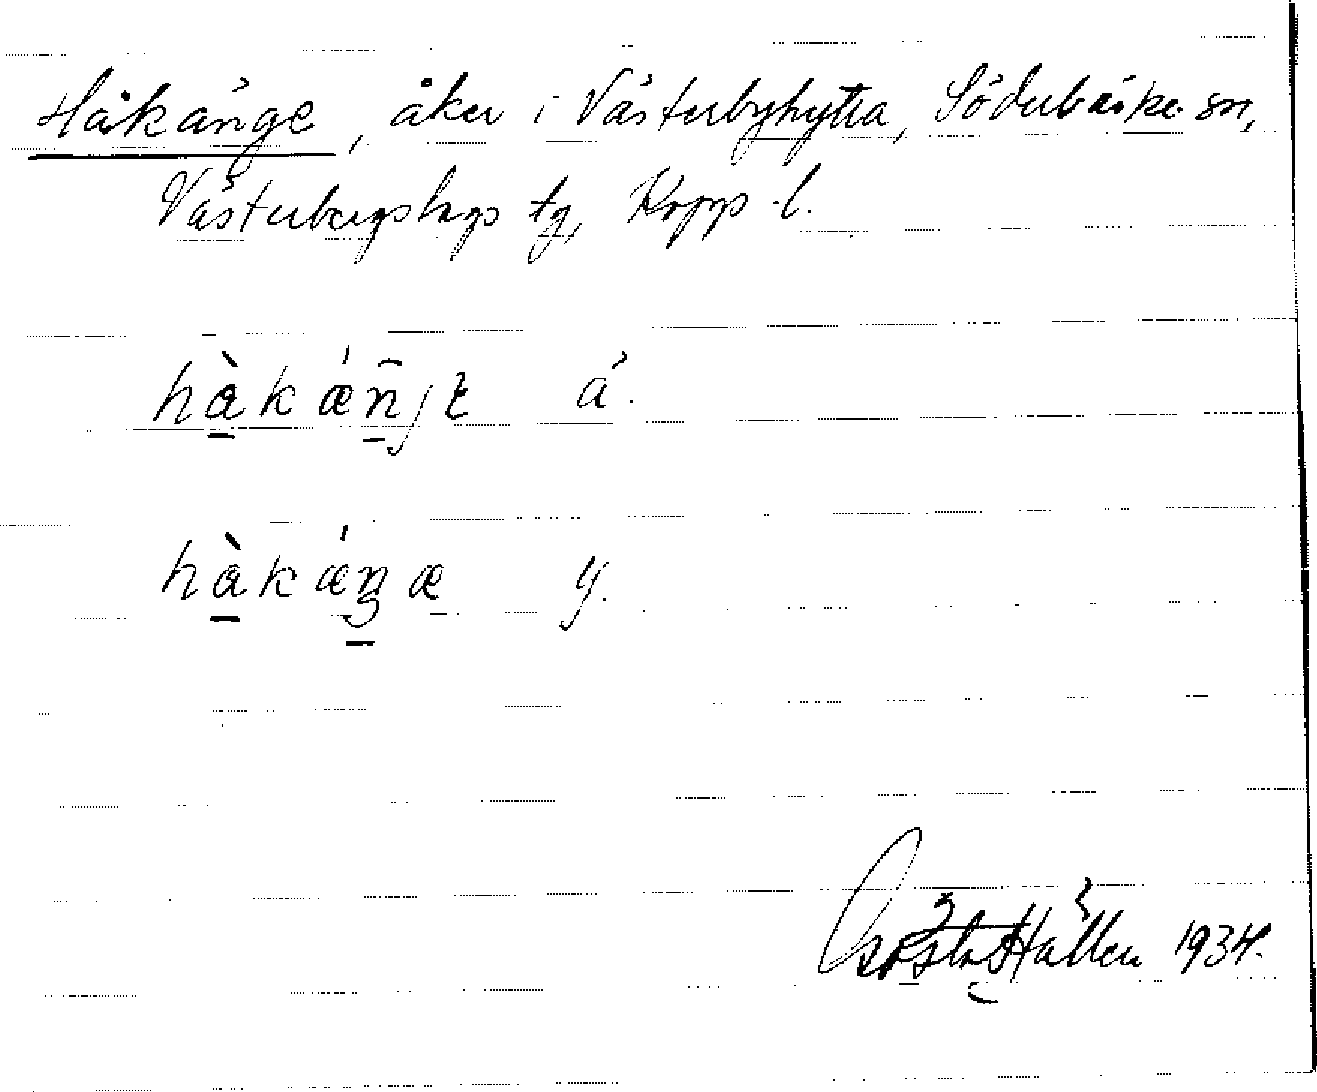 Håkänge, åker i Västerbyhytta, Söderbärke sn,
Västerbergslags tg, Kopp. l.
hàkǽñjɛ ä.
hàkǽŋæ y.
Gösta Hallén 1934.